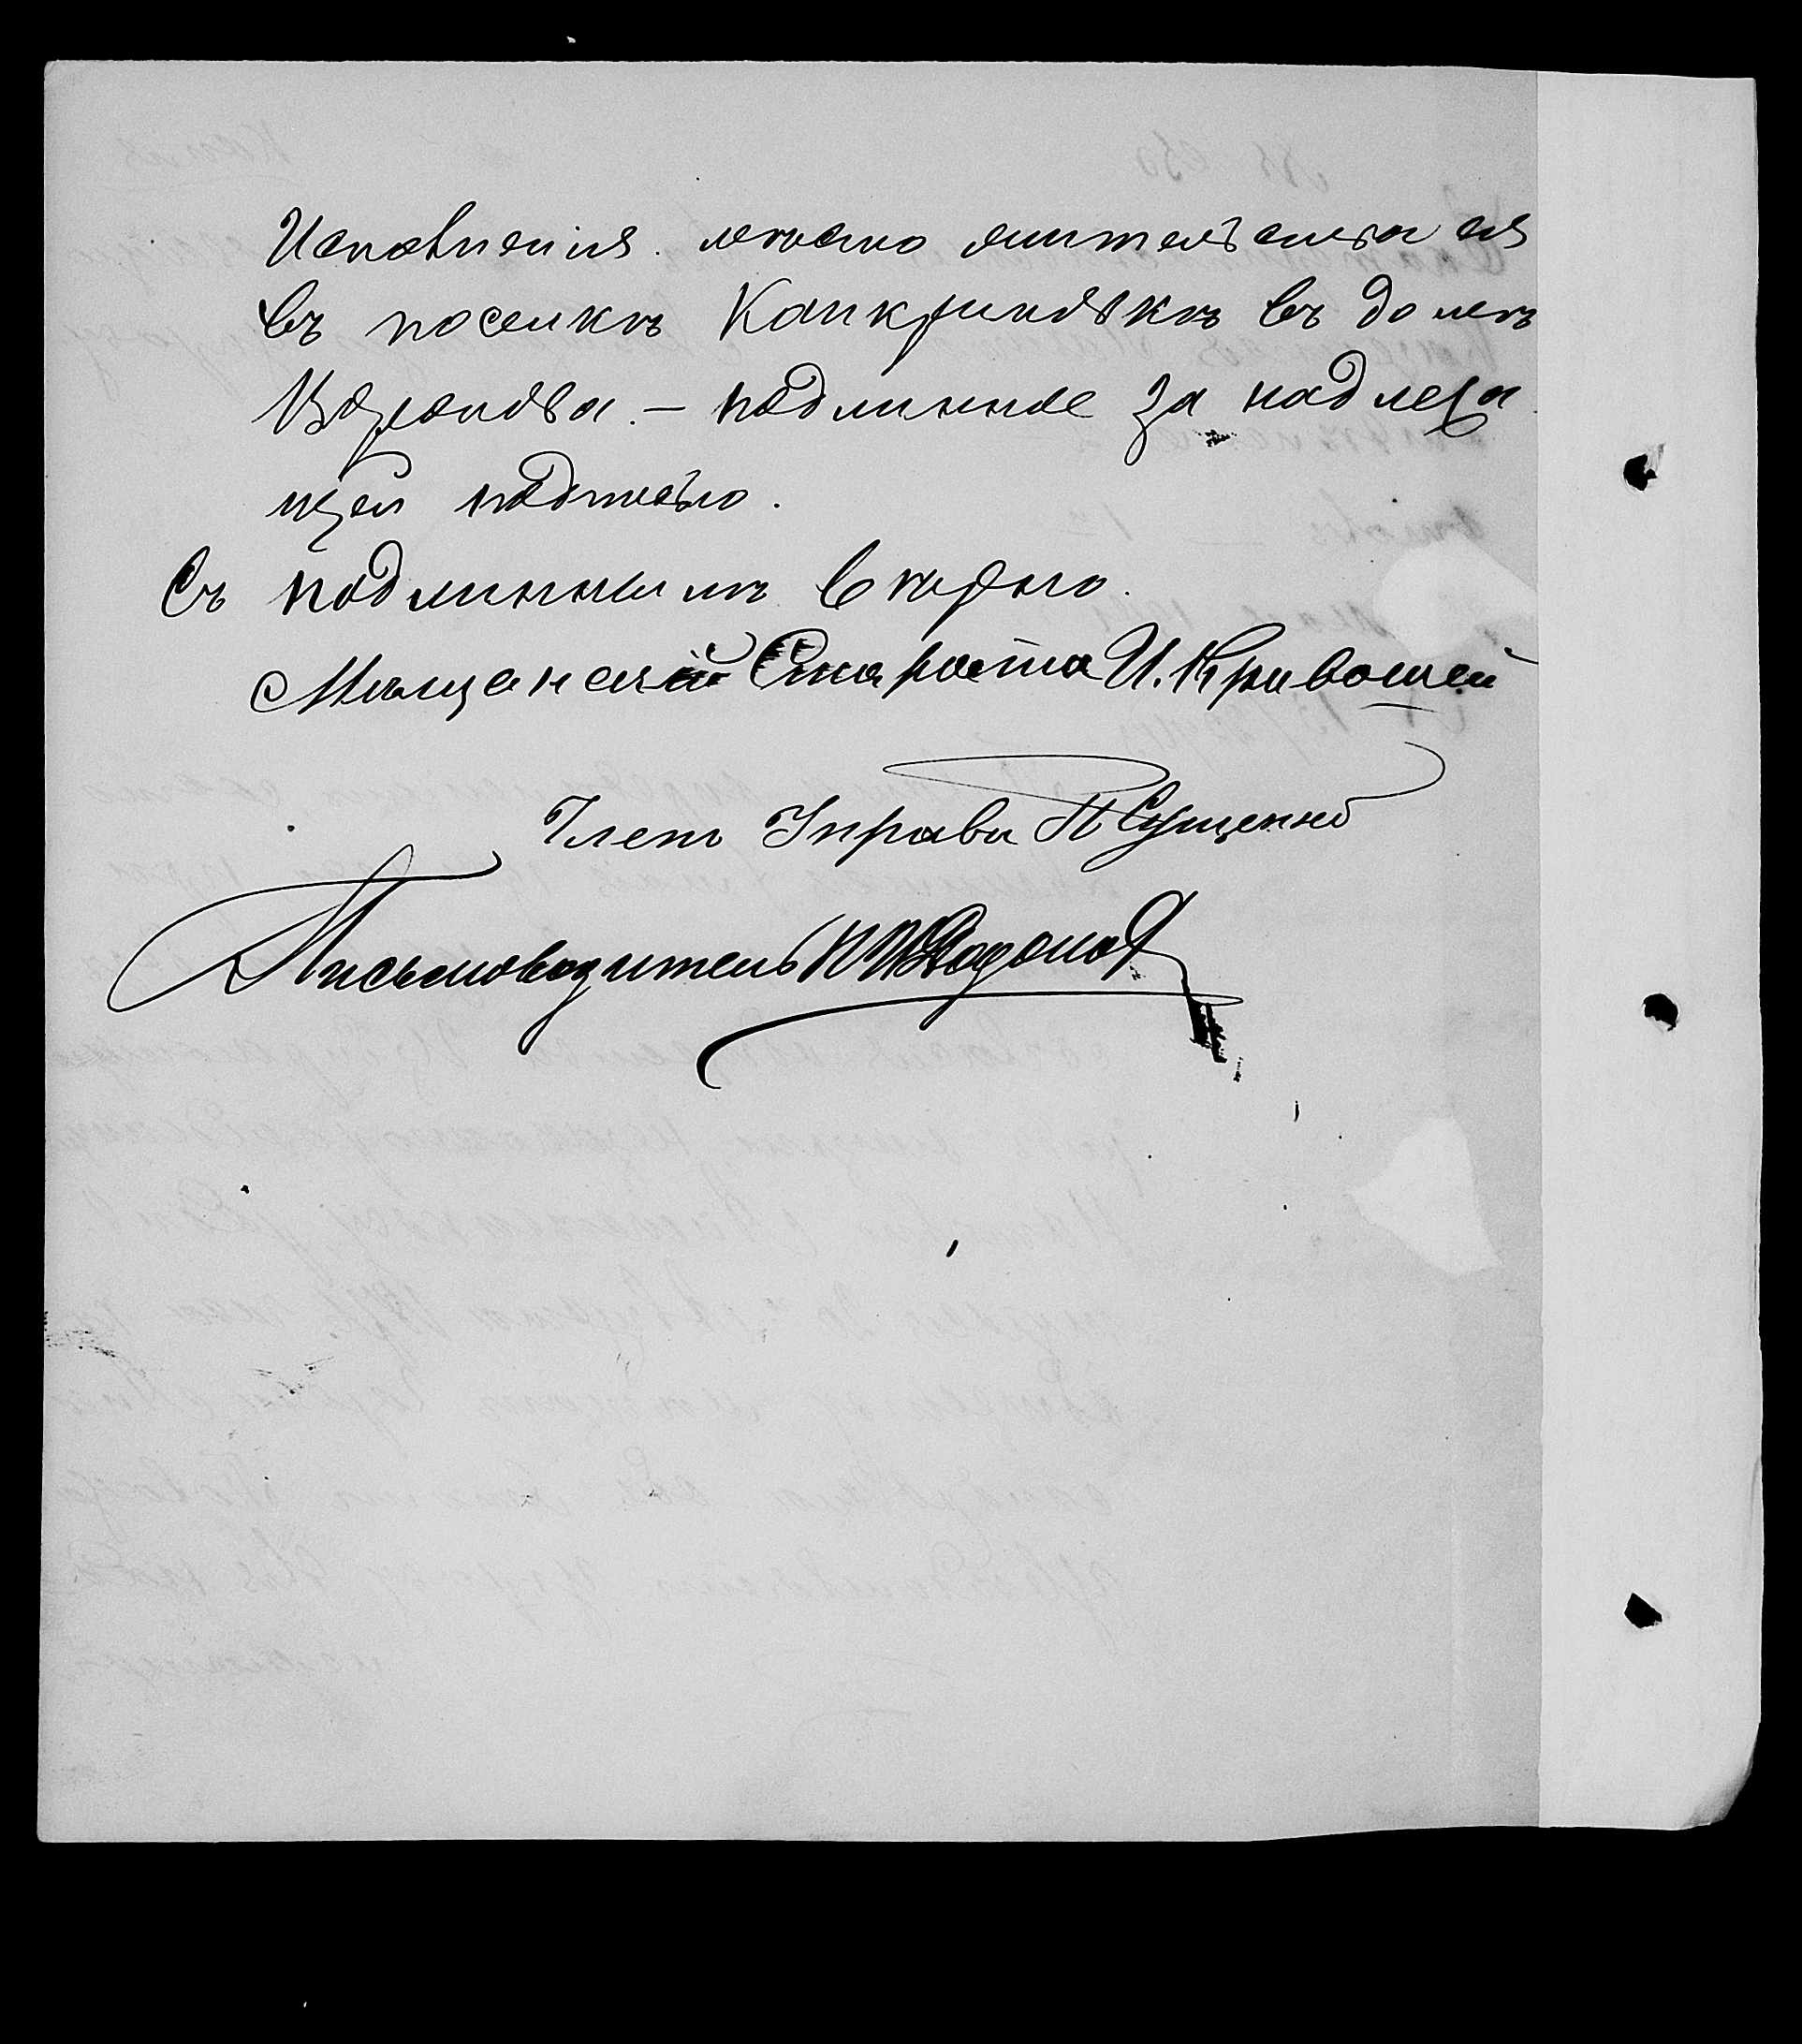 Исполненія. мѣсто жительства ея
въ поселкѣ Канкриновкѣ въ домѣ
Воронова. — подлинное за надлежа
щей подписью.
Съ подлиннымъ вѣрно.
Мѣщанский Староста И. Кривошей
Членъ Управы П Сущенко
Письмоводитель